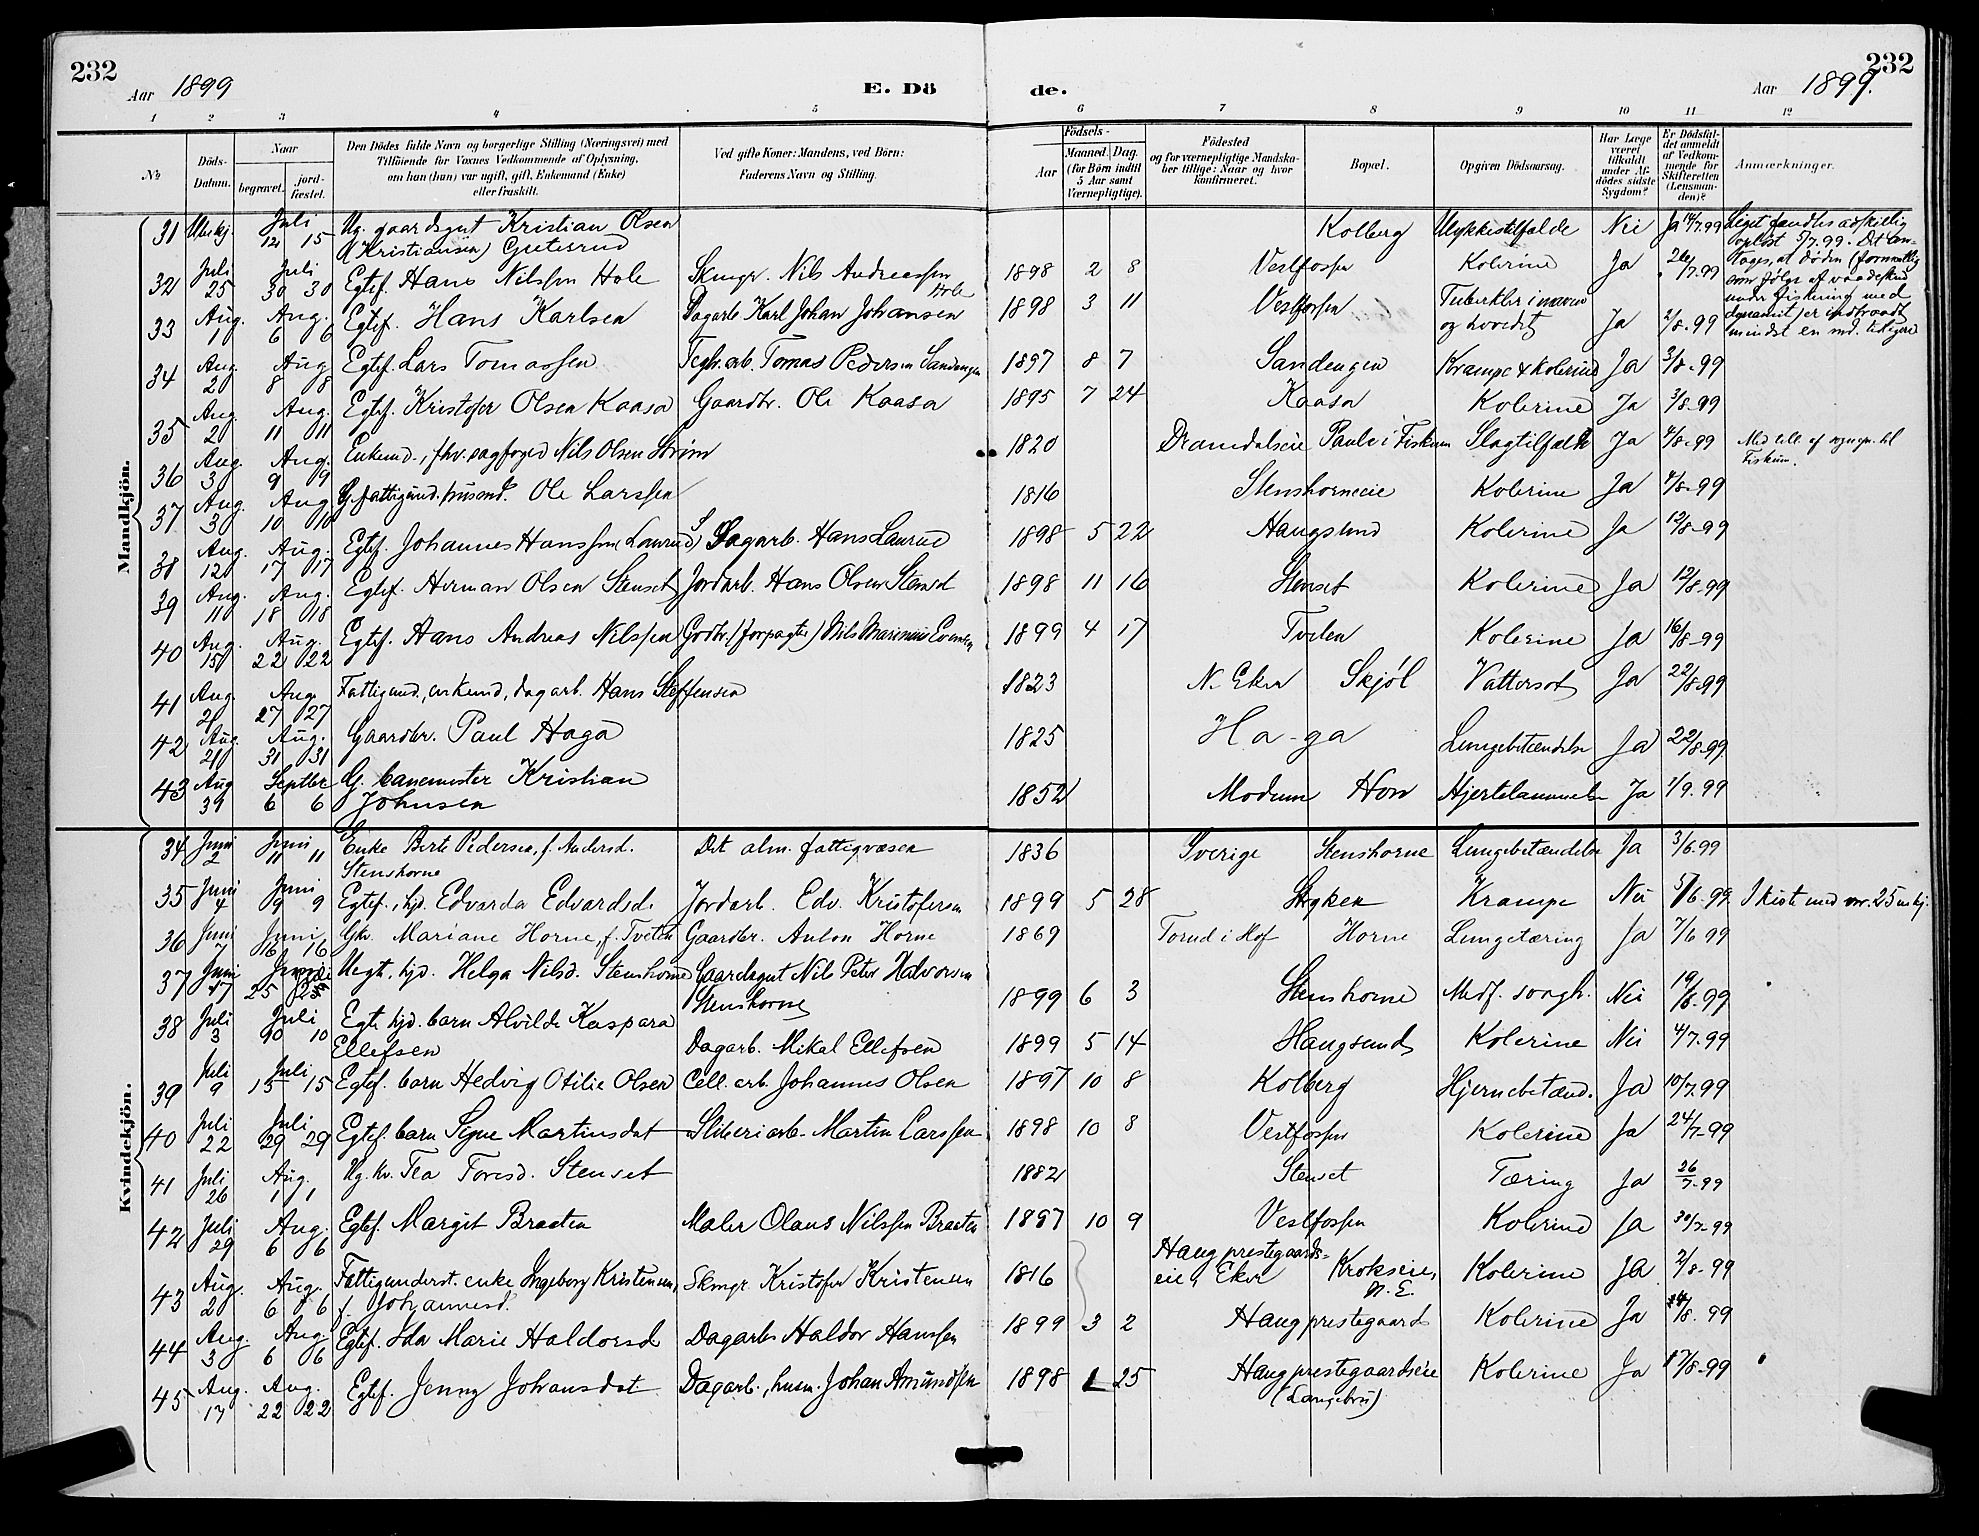 232
Aar 1899
E. Dö
de.
Aar 1899.
232
1 2 3 4 5 6 7 8 9 10 11 12
No
Döds-
Datum.
Naar
begravet.
jord-
fæstet.
Den Dödes fulde Navn og borgerlige Stilling (Næringsvei) med
Tilföiende for Voxnes Vedkommende af Oplysning,
om han (hun) var ugift, gift, Enkemand (Enke)
eller fraskilt.
Ved gifte Koner: Mandens, ved Börn:
Faderens Navn og Stilling.
Födsels-
Aar
Maaned. Dag.
(for Börn indtil
5 Aar samt
Værnepligtige).
Födested
og for værnepligtige Mandska-
ber tillige: Naar og hvor
konfirmeret.
Bopæl.
Opgiven Dödsaarsag.
Har Læge
været
tilkaldt
under Af-
dödes sidste
Sygdom?
Er Dödsfal-
det anmeldt
af Vedkom-
mende for
Skifteretten
(Lensman-
den)?
Anmærkninger.
Mandkjön.
31 Ubekj. Juli 12 15 Ug. gaardsgut Kristian Olsen (Kristiansen) Kolberg Ulykkestilfælde Nei Ja 14/7.99 Liget fandtes adskillig opløst 5/7.99. Det antages, at døden (formentlig som følge af vaadeskud under fiskning med dynamit) er indtraadt mindst en md. tidligere
32 Juli 25 Juli 30 30 Egtef. Hans Nilssen Hole Skmgr. Nils Andreassen Hole 1898 2 8 Vestfossen Kolerine Ja 26/7.99
33 Aug. 1 Aug. 6 6 Egtef. Hans Karlsen Dagarb. Karl Johan Johansen 1898 3 11 Vestfossen Tuberkler i maven og hovedet Ja 2/8-99
34 Aug. 2 Aug 8 8 Egtef. Lars Tomassen Teglv.arb. Tomas Pedersen Sandengen 1897 8 7 Sandengen Krampe & kolerine Ja 3/8-99
35 Aug. 2 Aug. 11 11 Egtef. Kristofer Olsen Kaasa Gaardbr. Ole Kaasa 1895 7 24 Kaasa Kolerine Ja 3/8-99
36 Aug. 3 Aug. 9 9 Enkemd., fhv. sagfoged Nils Olsen Strøm 1820 Dramdalseie Paule i Fiskum Slagtilfælde Ja 4/8-99 Med till. af sognepr. til Fiskum.
37 Aug. 3 Aug 10 10 G. fattigund. husmd. Ole Larssen 1816 Stenshorneeie Kolerine Ja 4/8-99
38 Aug. 12 Aug. 17 17 Egtef. Johannes Hanssen (Laurud) Dagarb. Hans Laurud 1898 5 22 Haugsund Kolerine Ja 12/8-99
39 Aug. 11 Aug. 18 18 Egtef. Herman Olsen Stenset Jordarb. Hans Olsen Stenset 1898 11 16 Stenset Kolerine Ja 12/8-99
40 Aug. 15 Aug. 22 22 Egtef. Hans Andreas Nilssen Grdbr. (forpagter) Nils Marenius Evensen 1899 4 17 Tveten Kolerine Ja 16/8-99
41 Aug. 21 Aug 27 27 Fattigund., enkemd, dagarb. Hans Steffensen 1823 N. Eker Skjøl Vattersot Ja 22/8-99
42 Aug. 21 Aug. 31 31 Gaardbr. Paul Haga 1825 Haga Lungebetændelse Ja 22/8-99
43 Aug 31 Septber 6 6 G. banemester Kristian Johnsen 1852 Modum Horn Hjertelammelse Ja 1/9.99
Kvindekjön.
34 Juni 2 Juni 11 11 Enke Berte Pedersen, f. Andersd. Stenshorne Det alm. fattigvæsen 1836 Sverige Stenshorne Lungebetændelse Ja 3/6.99
35 Juni 4 Juni 9 9 Egtef., hjd. Edvarda Edvardsd. Jordarb. Edv. Kristofersen 1899 5 28 Stryken Krampe Nei 5/6.99 I kiste med nr. 25 mkj.
36 Juni 7 Juni 16 16 Gkv. Mariane Horne, f. Tveten Gaardbr. Anton Horne 1869 Torud i Hof Horne Lungetæring Ja 7/6 99
37 Juni 17 Juni 25 Uegt. hjd. Helga Nilsd. Stenshorne Gaardsgut Nils Peter Halvorsen Stenshorne 1899 6 3 Stenshorne Medf. svagh. Nei 19/6-99
38 Juli 3 Juli 10 10 Egte hjd. barn Alvilde Kaspara Ellefsen Dagarb. Mikal Ellefsen 1899 5 14 Haugsund Kolerine Nei 4/7.99
39 Juli 9 Juli 15 15 Egtef. barn Hedvig Otilie Olsen Cell. arb. Johannes Olsen 1897 10 8 Kolberg Hjernebetænd. Ja 10/7.99
40 Juli 22 Juli 29 29 Egtef. barn Signe Martinsdat Sliberiarb. Martin Larssen 1898 10 8 Vestfossen Kolerine Ja 24/7-99
41 Juli 26 Aug. 1 1 Ug. kv. Tea Toresd. Stenset 1882 Stenset Tæring Ja 26/7-99
42 Juli 29 Aug 6 6 Egtef. Margit Braaten Maler Olaus Nilssen Braaten 1897 10 9 Vestfossen Kolerine Ja 30/7-99
43 Aug. 2 Aug. 6 6 Fattigunderst. enke Ingeborg Kristensen, f. Johannesd. Skmgr. Kristofer Kristensen 1816 Haug prestegaards-eie, Eker Krokseie, N. E. Kolerine Ja 2/8-99
44 Aug. 3 Aug. 6 6 Egtef. Ida Marie Haldorsd Dagarb. Haldor Hanssen 1899 3 2 Haug prestegaard Kolerine Ja 4/8.99
45 Aug. 17 Aug. 22 22 Egtef. Jenny Johansdat Dagarb., husm. Johan Amundsen 1898 1 25 Haug prestegaardseie (Langebru) Kolerine Ja 17/8-99